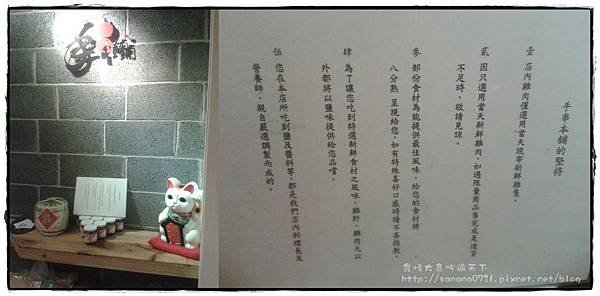 手串本舖的堅持
壹 店內雞肉僅選用當天現宰新鮮雞隻。
貳 因只選用當天新鮮雞肉，如遇限量商品售完或是進貨
不足時，敬請見諒。
參 部份食材為能提供最佳風味，給您的食材將
八分熟 呈現給您，如有特殊喜好口感時請不吝指教。
肆 為了讓您吃到特選新鮮食材之風味，雞肝、雞肉丸以
外都將以鹽味提供給您品嚐。
伍 您在本店所吃到鹽及醬料等，都是我們店內料理長及
營養師，親自嚴選調製而成的。
貪恆大意吃遍天下
http://sonono0721.pixnet.net/blog